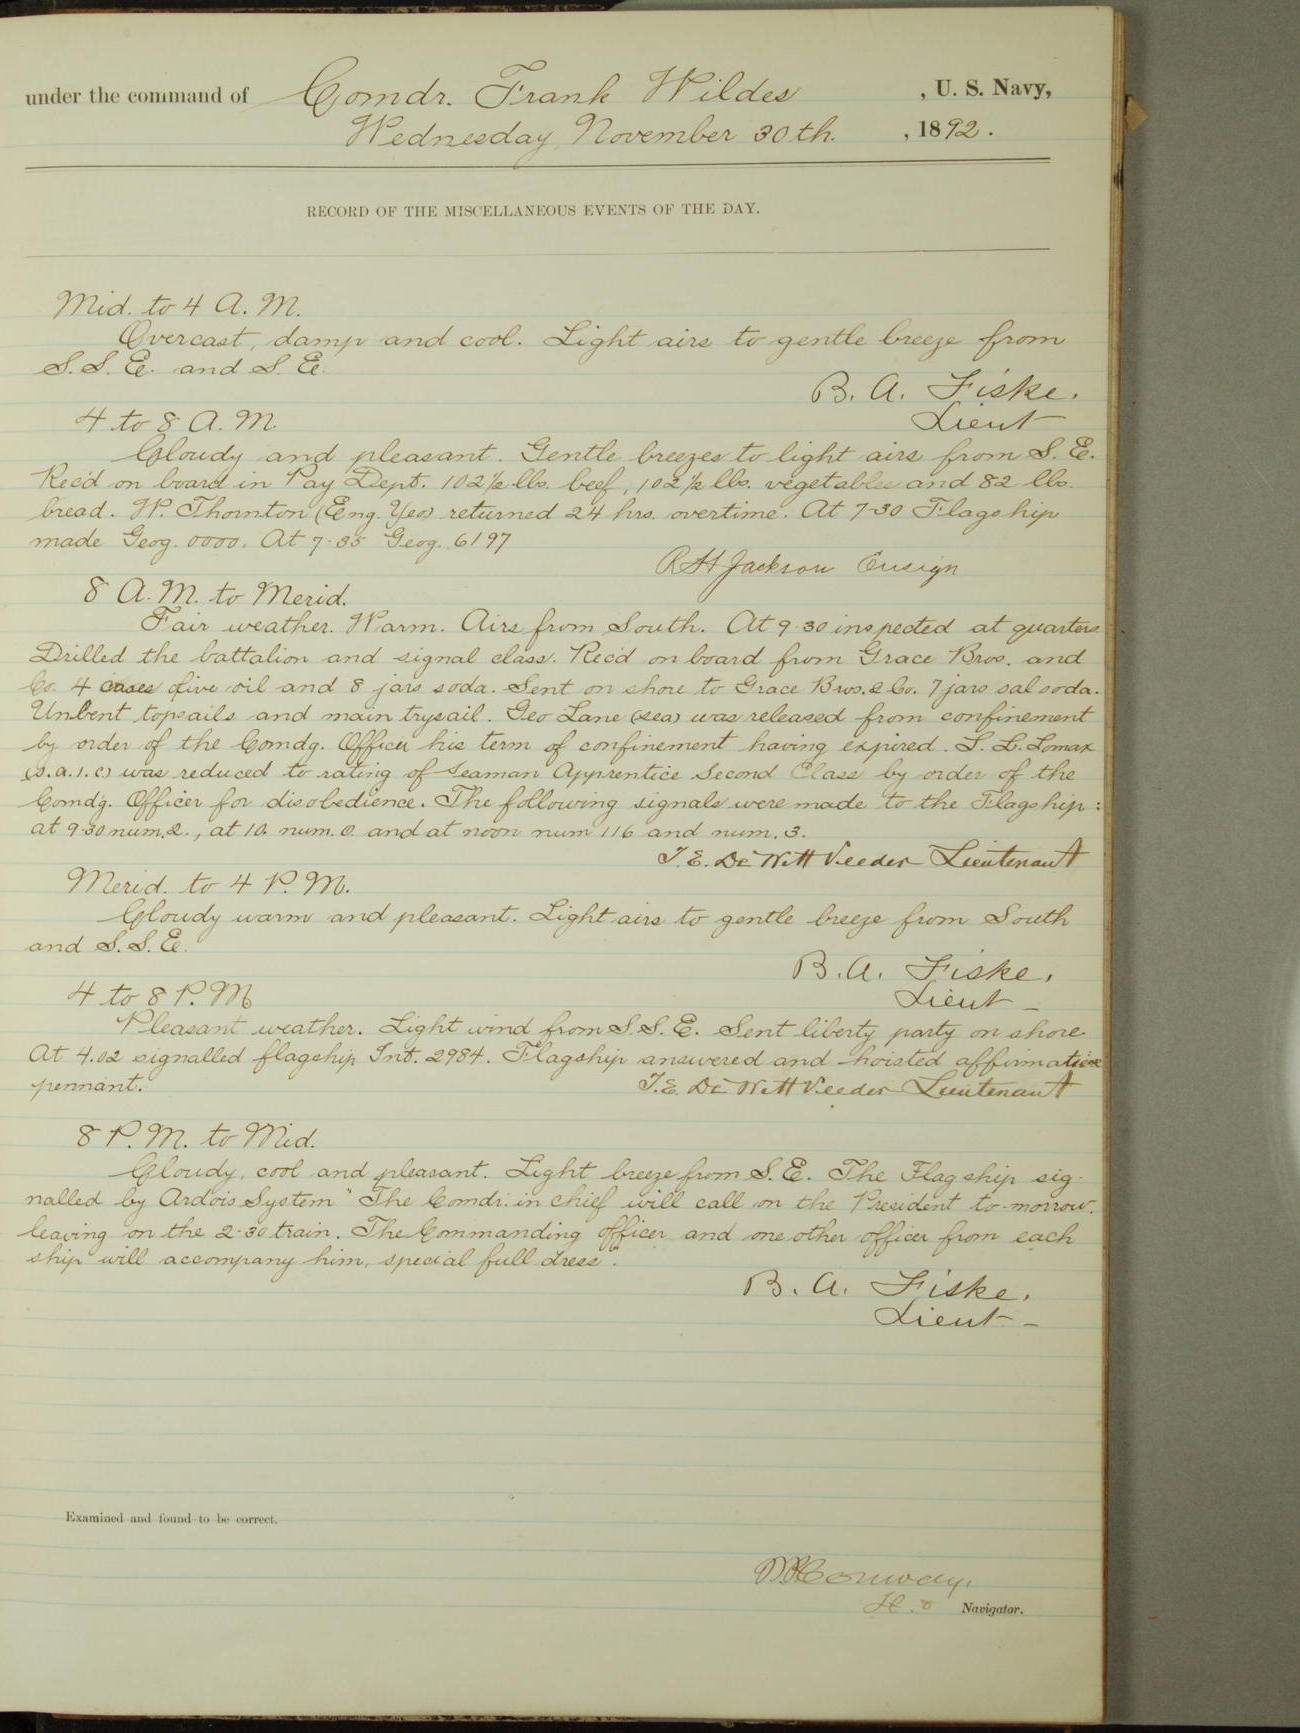 under the command of Comdr. Frank Wildes , U. S. Navy,
Wednesday November 30th. , 1892.
RECORD OF THE MISCELLANEOUS EVENTS OF THE DAY.
Mid. to 4 A. M.
Overcast, damp and cool. Light airs to gentle breeze from
S. S. E. and S. E.
B. A. Fiske.
Lieut
4 to 8 A. M.
Cloudy and pleasant. Gentle breezes to light airs from S. E.
Rec'd on board in Pay Dept. 102½ lbs. beef, 102½ lbs. vegetables and 82 lbs.
bread. W. Thornton (Eng. Yeo) returned 24 hrs. overtime. At 7-30 Flagship
made Geog. 0000. At 7-35 Geog. 6197
R H Jackson Ensign
8 A. M. to Merid.
Fair weather. Warm. Airs from South. At 9-30 inspected at quarters
Drilled the battalion and signal class. Rec'd on board from Grace Bros. and
Co. 4 cases olive oil and 8 jars soda. Sent on shore to Grace Bros. & Co. 7 jars sal soda.
Unbent topsails and main trysail. Geo Lane (sea) was released from confinement
by order of the Comdg. Officer his term of confinement having expired. S. L. Lomax
(s. a. 1. c) was reduced to rating of Seaman Apprentice Second Class by order of the
Comd'g. Officer for disobedience. The following signals were made to the Flagship :
at 9-30 num. 2., at 10. num. 0. and at noon num 116 and num. 3.
T. E. De Witt Veeder Lieutenant
Merid. to 4 P. M.
Cloudy warm and pleasant. Light airs to gentle breeze from South
and S. S. E.
B. A. Fiske,
Lieut —
4 to 8 P. M
Pleasant weather. Light wind from S. S. E. Sent liberty party on shore
At 4.02 signalled flagship Int. 2984. Flagship answered and hoisted affirmative
pennant.
T. E. De Witt Veeder Lieutenant
8 P. M. to Mid.
Cloudy, cool and pleasant. Light breeze from S. E. The Flagship sig-
nalled by Ardois System "The Comdr. in Chief will call on the President to-morrow.
leaving on the 2-30 train. The Commanding officer and one other officer from each
ship will accompany him, special full dress".
B. A. Fiske,
Lieut —
Examined and found to be correct.
Conway,
Navigator.